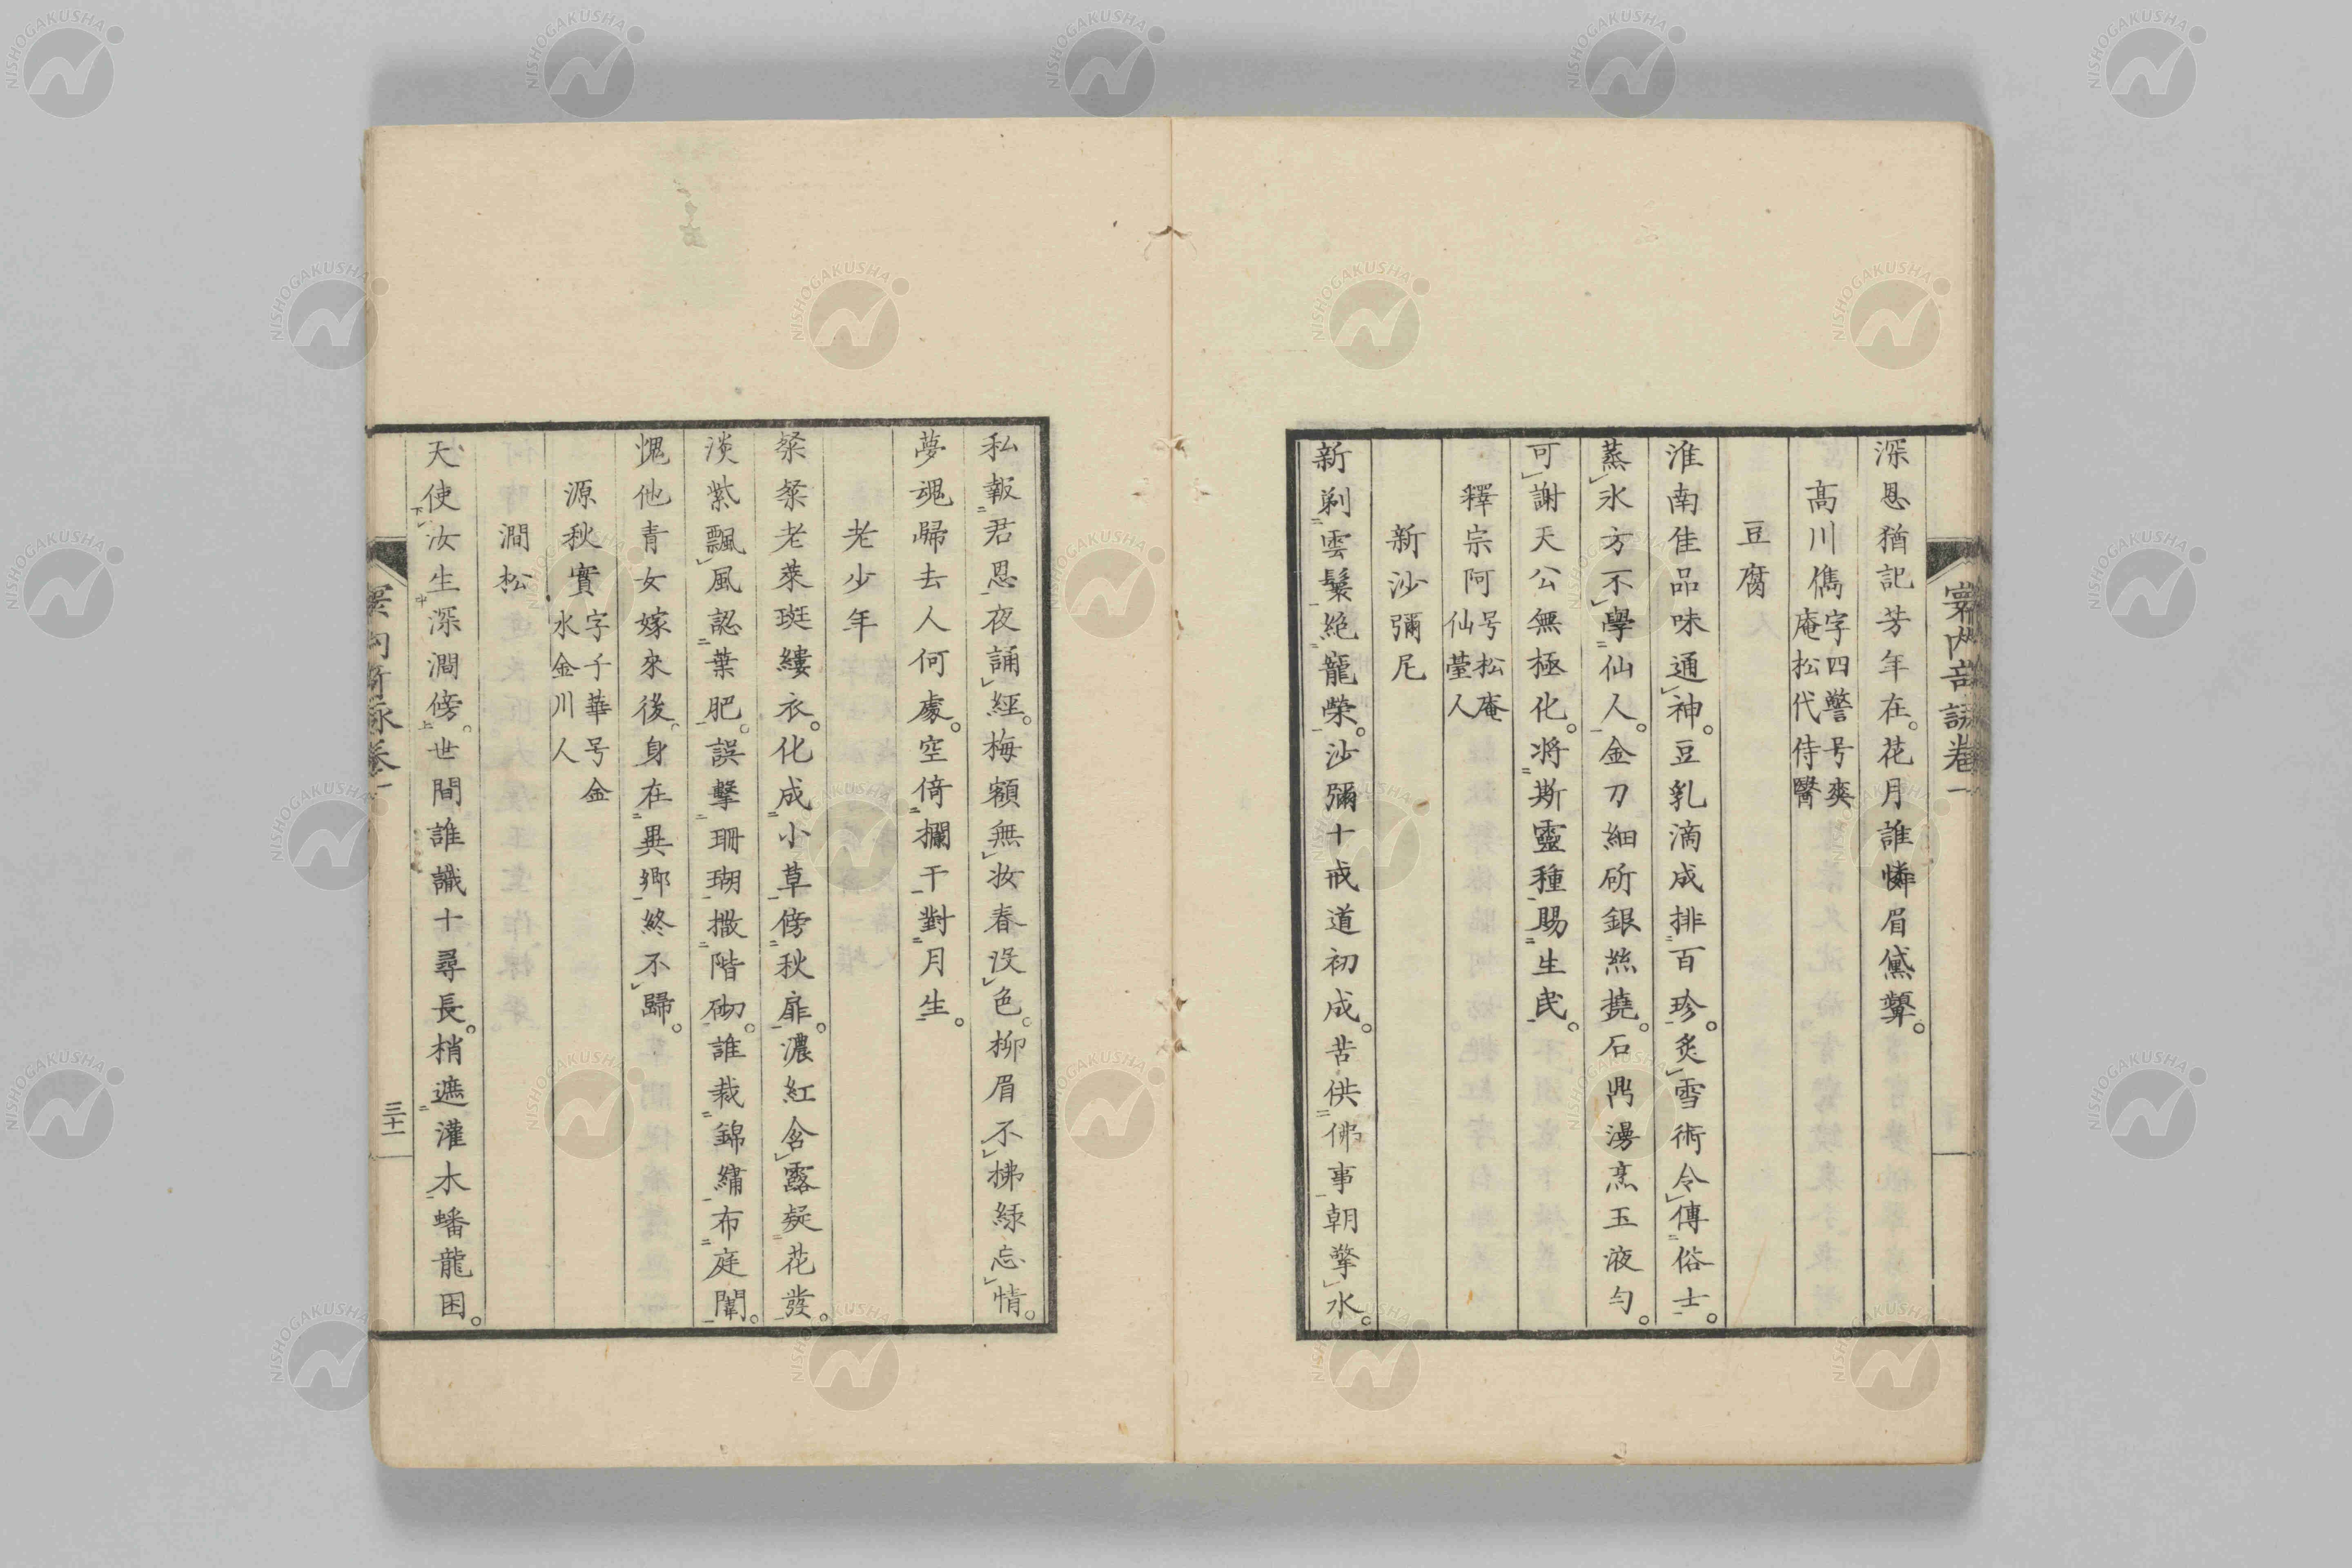 深恩猶記芳年在。花月誰憐眉黛顰。
高川儁字四警号爽庵松代侍醫
豆腐
淮南佳品味通神。豆乳滴成排百珍。炙雪術令傳俗士。
蒸氷方不學仙人。金刀細斫銀絲撓。石鼎湯烹玉液勻。
可謝天公無極化。将斯靈種賜生民。
釋宗阿号松庵仙䑓人
新沙彌尼
新剃雲鬟絶寵榮。沙彌十戒道初成。苦供佛事朝擎水。
私報君恩夜誦經。梅額無妝春没色。柳眉不拂緑忘情。
夢魂歸去人何處。空倚欄干對月生。
老少年
粲粲老萊斑縷衣。化成小草傍秋扉。濃紅含露凝花發。
淡紫飄風認葉肥。誤擊珊瑚撒階砌。誰裁錦繡布庭闈。
愧他青女嫁來後。身在異鄉終不歸。
源秋實字子華号金水金川人
澗松
天使汝生深澗傍。世間誰識十尋長。梢遮灌木蟠龍困。
三十一
NISHOGAKUSHA